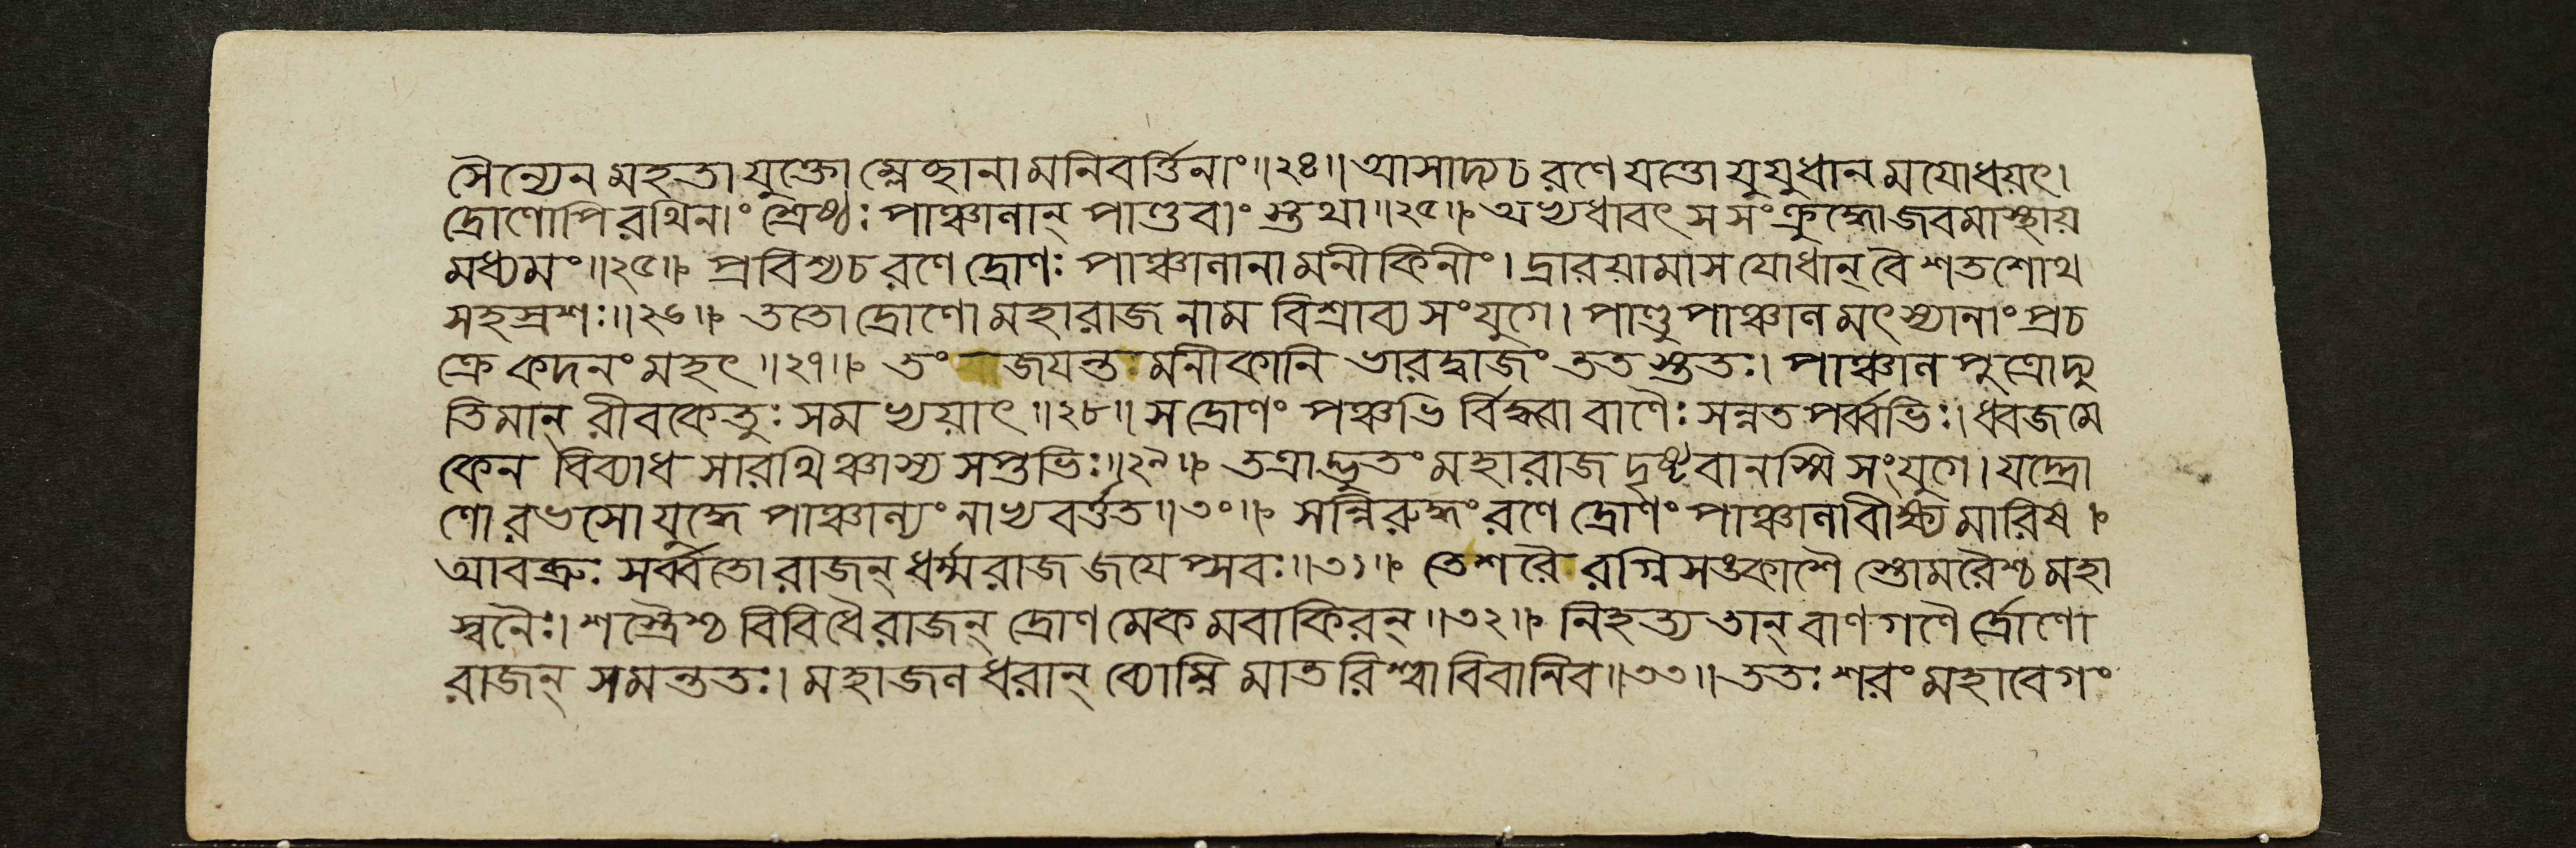 সৈন্যেন মহতা যুক্তো ম্লেচ্ছানামনিবর্ত্তিনাং॥২৪॥ আসাদ্য চ রণে যত্তো যুযুধানমযোধয়ৎ।
দ্রোণোপি রথিনাং শ্রেষ্ঠঃ পাঞ্চালান্ পাণ্ডবাংস্তথা॥২৫॥ অভ্যধাবৎ সসংক্রুদ্ধো জবমাস্থায়
মধ্যমং॥২৫॥ প্রবিশ্য চ রণে দ্রোণঃ পাঞ্চালানামনীকিনীং। দ্রারয়ামাস যোধান্ বৈ শতশোথ
সহস্রশঃ॥২৬॥ ততো দ্রোণো মহারাজ নাম বিশ্রাব্য সংযুগে। পাণ্ডুপাঞ্চালমৎস্যানাং প্রচ
ক্রে কদনং মহৎ॥২৭॥ তং জযন্তমনীকানি ভারদ্বাজং ততস্ততঃ। পাঞ্চালপুত্রো দ্যু
তিমান্ বীরকেতুঃ সমভ্যয়াৎ॥২৮॥ স দ্রোণং পঞ্চভির্বিদ্ধ্বা বাণৈঃ সন্নতপর্ব্বভিঃ। ধ্বজমে
কেন বিব্যাধ সারথিঞ্চাস্য সপ্তভিঃ॥২৯॥ তত্রাদ্ভুতং মহারাজ দৃষ্টবানস্মি সংযুগে। যদ্দ্রো
ণো রভসো যুদ্ধে পাঞ্চাল্যং নাভ্যবর্ত্তত॥৩০॥ সন্নিরুদ্ধং রণে দ্রোণং পাঞ্চালা বীক্ষ্য মারিষ।
আবব্রুঃ সর্ব্বতো রাজন্ ধর্ম্মরাজজযেপ্সবঃ॥৩১॥ তে শরৈরগ্নিসঙ্কাশৈস্তোমরৈশ্চ মহা
স্বনৈঃ। শস্ত্রৈশ্চ বিবিধৈ রাজন্ দ্রোণমেকমবাকিরন্॥৩২॥ নিহত্য তান্ বাণগণৈর্দ্রোণো
রাজন্ সমন্ততঃ। মহাজলধরান্ ব্যোম্নি মাতরিশ্বা বিবানিব॥৩৩॥ ততঃ শরং মহাবেগং